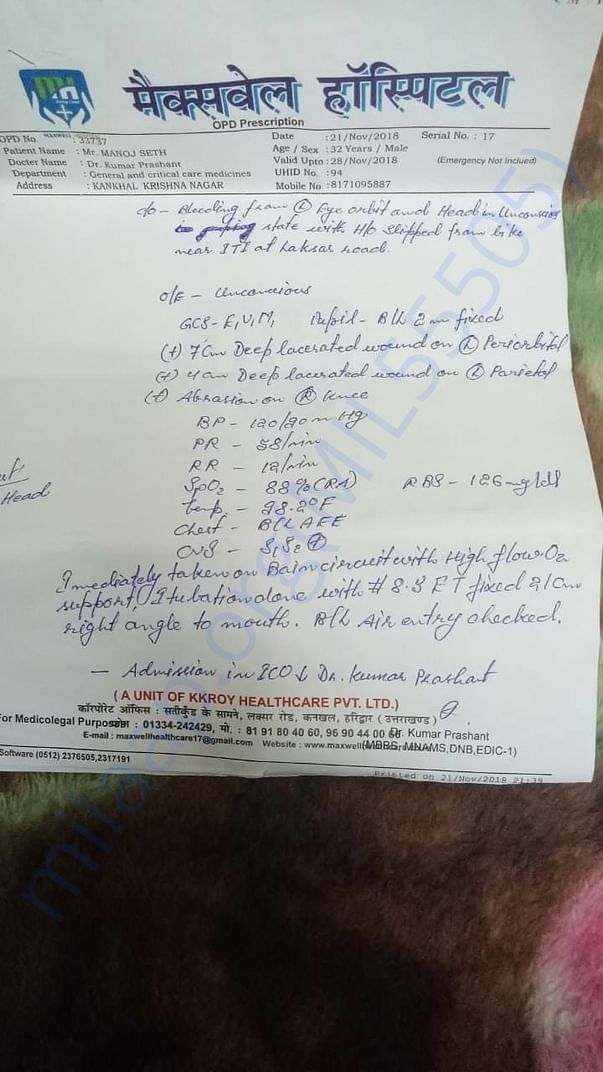 मैक्सवेल हॉस्पिटल
OPD Prescription
OPD No. : 33737
Date : 21/Nov/2018 Serial No. : 17
Patient Name : Mr. MANOJ SETH
Age / Sex : 32 Years / Male
Docter Name : Dr. Kumar Prashant
Valid Upto : 28/Nov/2018 (Emergency Not Inclued)
Department : General and critical care medicines
UHID No. : 94
Address : KANKHAL KRISHNA NAGAR
Mobile No : 8171095887
c/o - Bleeding from Ⓛ Eye orbit and Head in Unconsious
state with H/o Slipped from bike
near ITI at Laksar road.
O/E - Unconsious
GCS - E₁V₁M₁ Pupil - B/L 2 mm fixed
(+) 7 cm Deep lacerated wound on Ⓛ Periorbital
(+) 4 cm Deep lacerated wound on Ⓛ Parietal
(+) Abrasion on Ⓡ Knee
BP - 120/90 mm Hg
PR - 58/min
RR - 12/min
SpO₂ - 88% (RA) RBS - 126 mg/dl
Temp - 98.2°F
Chest - B/L AEE
CVS - S₁S₂ ⊕
Head
Imediately taken on Bain circuit with High flow O₂
support, Itubation done with # 8.5 ET fixed 21 cm
right angle to mouth. B/L Air entry checked.
- Admission in ICU ↓ Dr. Kumar Prashant
( A UNIT OF KKROY HEALTHCARE PVT. LTD.)
कॉरपोरेट ऑफिस : सतीकुंड के सामने, लक्सर रोड, कनखल, हरिद्वार ( उत्तराखण्ड )
For Medicolegal Purpose
फोन : 01334-242429, मो. : 81 91 80 40 60, 96 90 44 00 66
Dr. Kumar Prashant
E-mail : maxwellhealthcare17@gmail.com Website : www.maxwell
(MBBS, MNAMS,DNB,EDIC-1)
Software (0512) 2376505,2317191
Printed on 21/Nov/2018 21:39